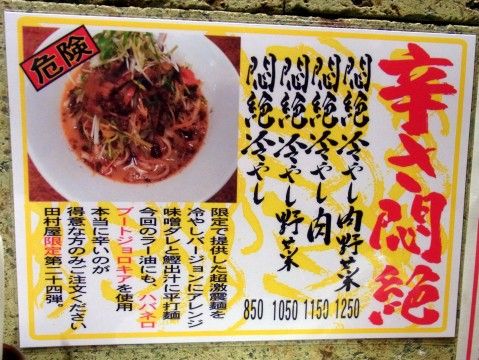 辛さ悶絶
悶絶冷やし肉野菜
悶絶冷やし肉
悶絶冷やし野菜
悶絶冷やし
850 1050 1150 1250
危険
限定で提供した超激震麺を
冷やしバージョンにアレンジ
味噌ダレ+鰹出汁に平打麺
今回のラー油にも、ハバネロ
ブートジョロキアを使用
本当に辛いのが
得意な方のみご注文ください
田村屋限定第二十四弾。